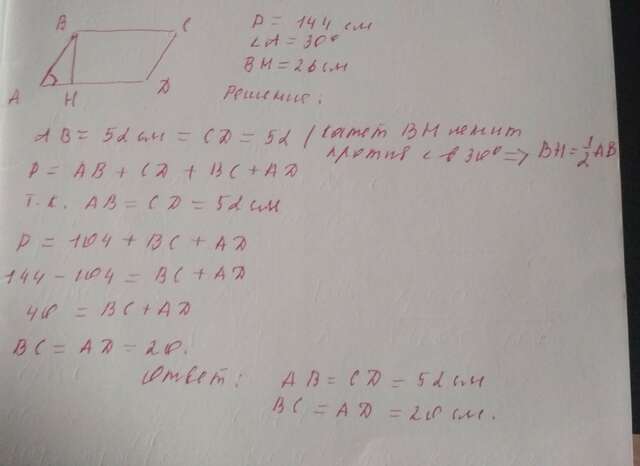 B C
A H D
P = 144 см
∠A = 30°
BH = 26 см
Решение:
AB = 52 см = CD = 52 (катет BH лежит
против ∠ в 30° => BH = 1/2 AB
P = AB + CD + BC + AD
т.к. AB = CD = 52 см
P = 104 + BC + AD
144 - 104 = BC + AD
40 = BC + AD
BC = AD = 20.
Ответ: AB = CD = 52 см
BC = AD = 20 см.